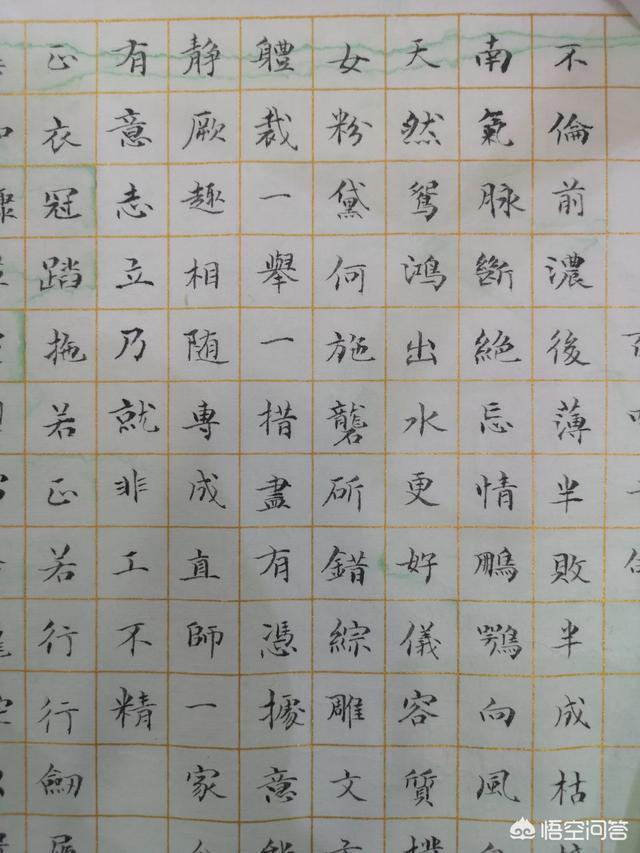 不倫前濃後薄半敗半成枯
南氣脉斷絕忌情鵬鶚向風
天然鴛鴻出水更好儀容質
女粉黛何施礱斫錯綜雕文
軆裁一舉一措盡有憑據意
静厥趣相随專成直師一家
有意志立乃就非工不精
正衣冠踏拖若正若行行劒
悟空问答